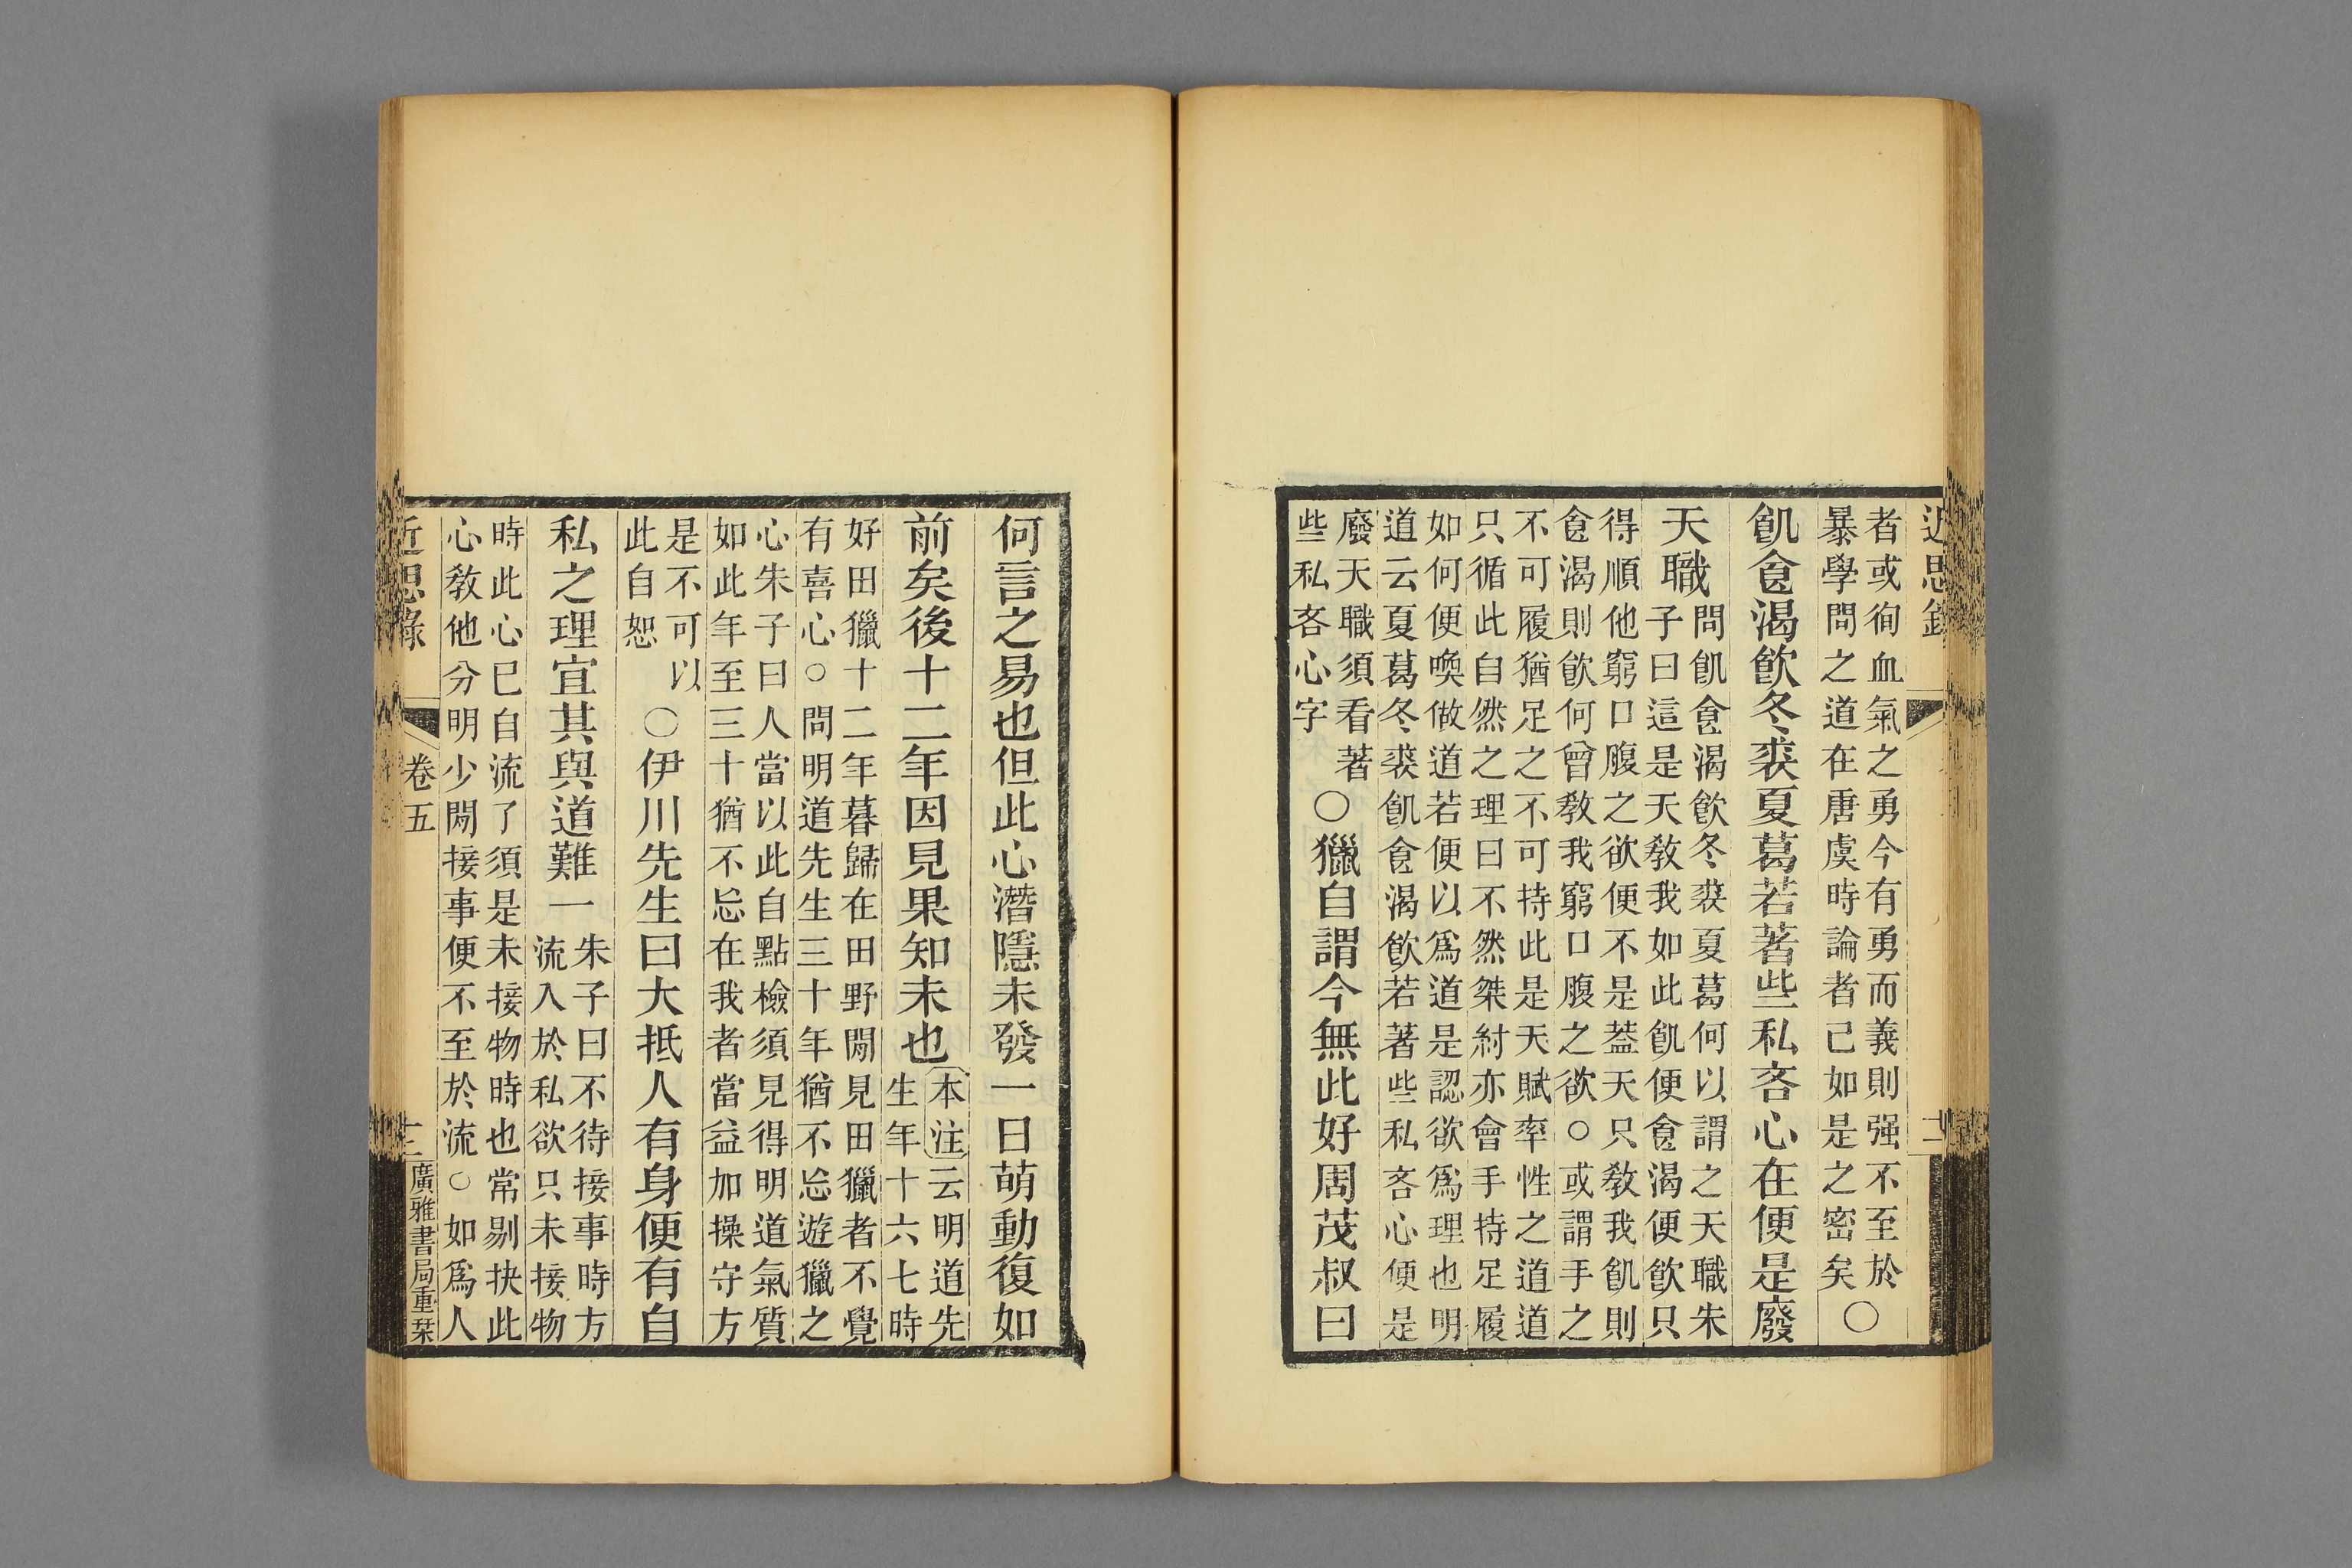 近思錄
者或徇血氣之勇今有勇而義則强不至於
暴學問之道在唐虞時論者已如是之密矣
○
飢食渴飮冬裘夏葛若著些私吝心在便是廢
天職
問飢食渴飮冬裘夏葛何以謂之天職朱
子曰這是天敎我如此飢便食渴便飮只
得順他窮口腹之欲便不是葢天只敎我飢則
食渴則飮何曾敎我窮口腹之欲○或謂手之
不可履猶足之不可持此是天賦率性之道道
只循此自然之理曰不然桀紂亦會手持足履
如何便喚做道若便以爲道是認欲爲理也明
道云夏葛冬裘飢食渴飮若著些私吝心便是
廢天職須看著
些私吝心字
○獵自謂今無此好周茂叔曰
何言之易也但此心潛隱未發一日萌動復如
前矣後十二年因見果知未也
本注云明道先
生年十六七時
好田獵十二年暮歸在田野閒見田獵者不覺
有喜心○問明道先生三十年猶不忘遊獵之
心朱子曰人當以此自點檢須見得明道氣質
如此年至三十猶不忘在我者當益加操守方
是不可以
此自恕
○伊川先生曰大抵人有身便有自
私之理宜其與道難一
朱子曰不待接事時方
流入於私欲只未接物
時此心已自流了須是未接物時也常剔抉此
心敎他分明少閒接事便不至於流○如爲人
近思錄
卷五
廣雅書局重栞